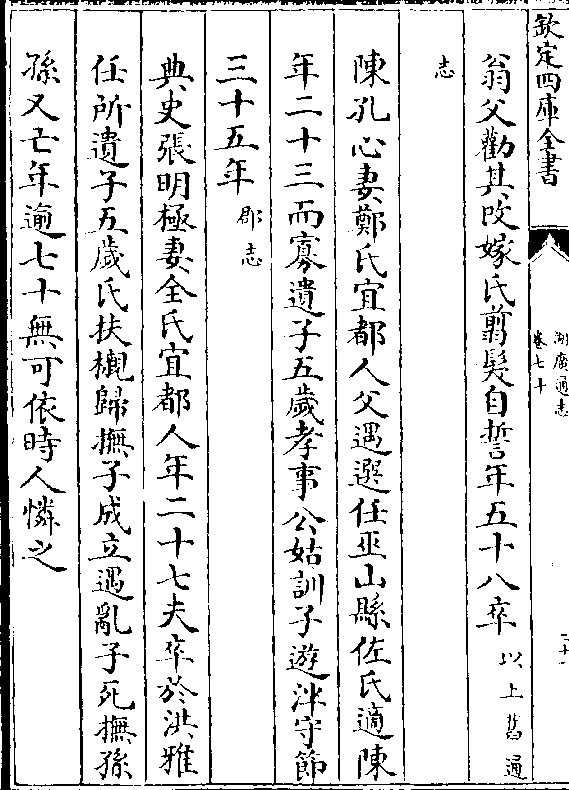 欽定四庫全書
湖廣通志
卷七十
翁父勸其改嫁氏翦髮自誓年五十八卒以上舊通
志
陳孔心妻鄭氏宜都人父遇選任巫山縣佐氏適陳
年二十三而寡遺子五歲孝事公姑訓子遊泮守節
三十五年郡志
典史張明極妻全氏宜都人年二十七夫卒於洪雅
任所遺子五歲氏扶櫬歸撫子成立遇亂子死撫孫
孫又亡年逾七十無可依時人憐之